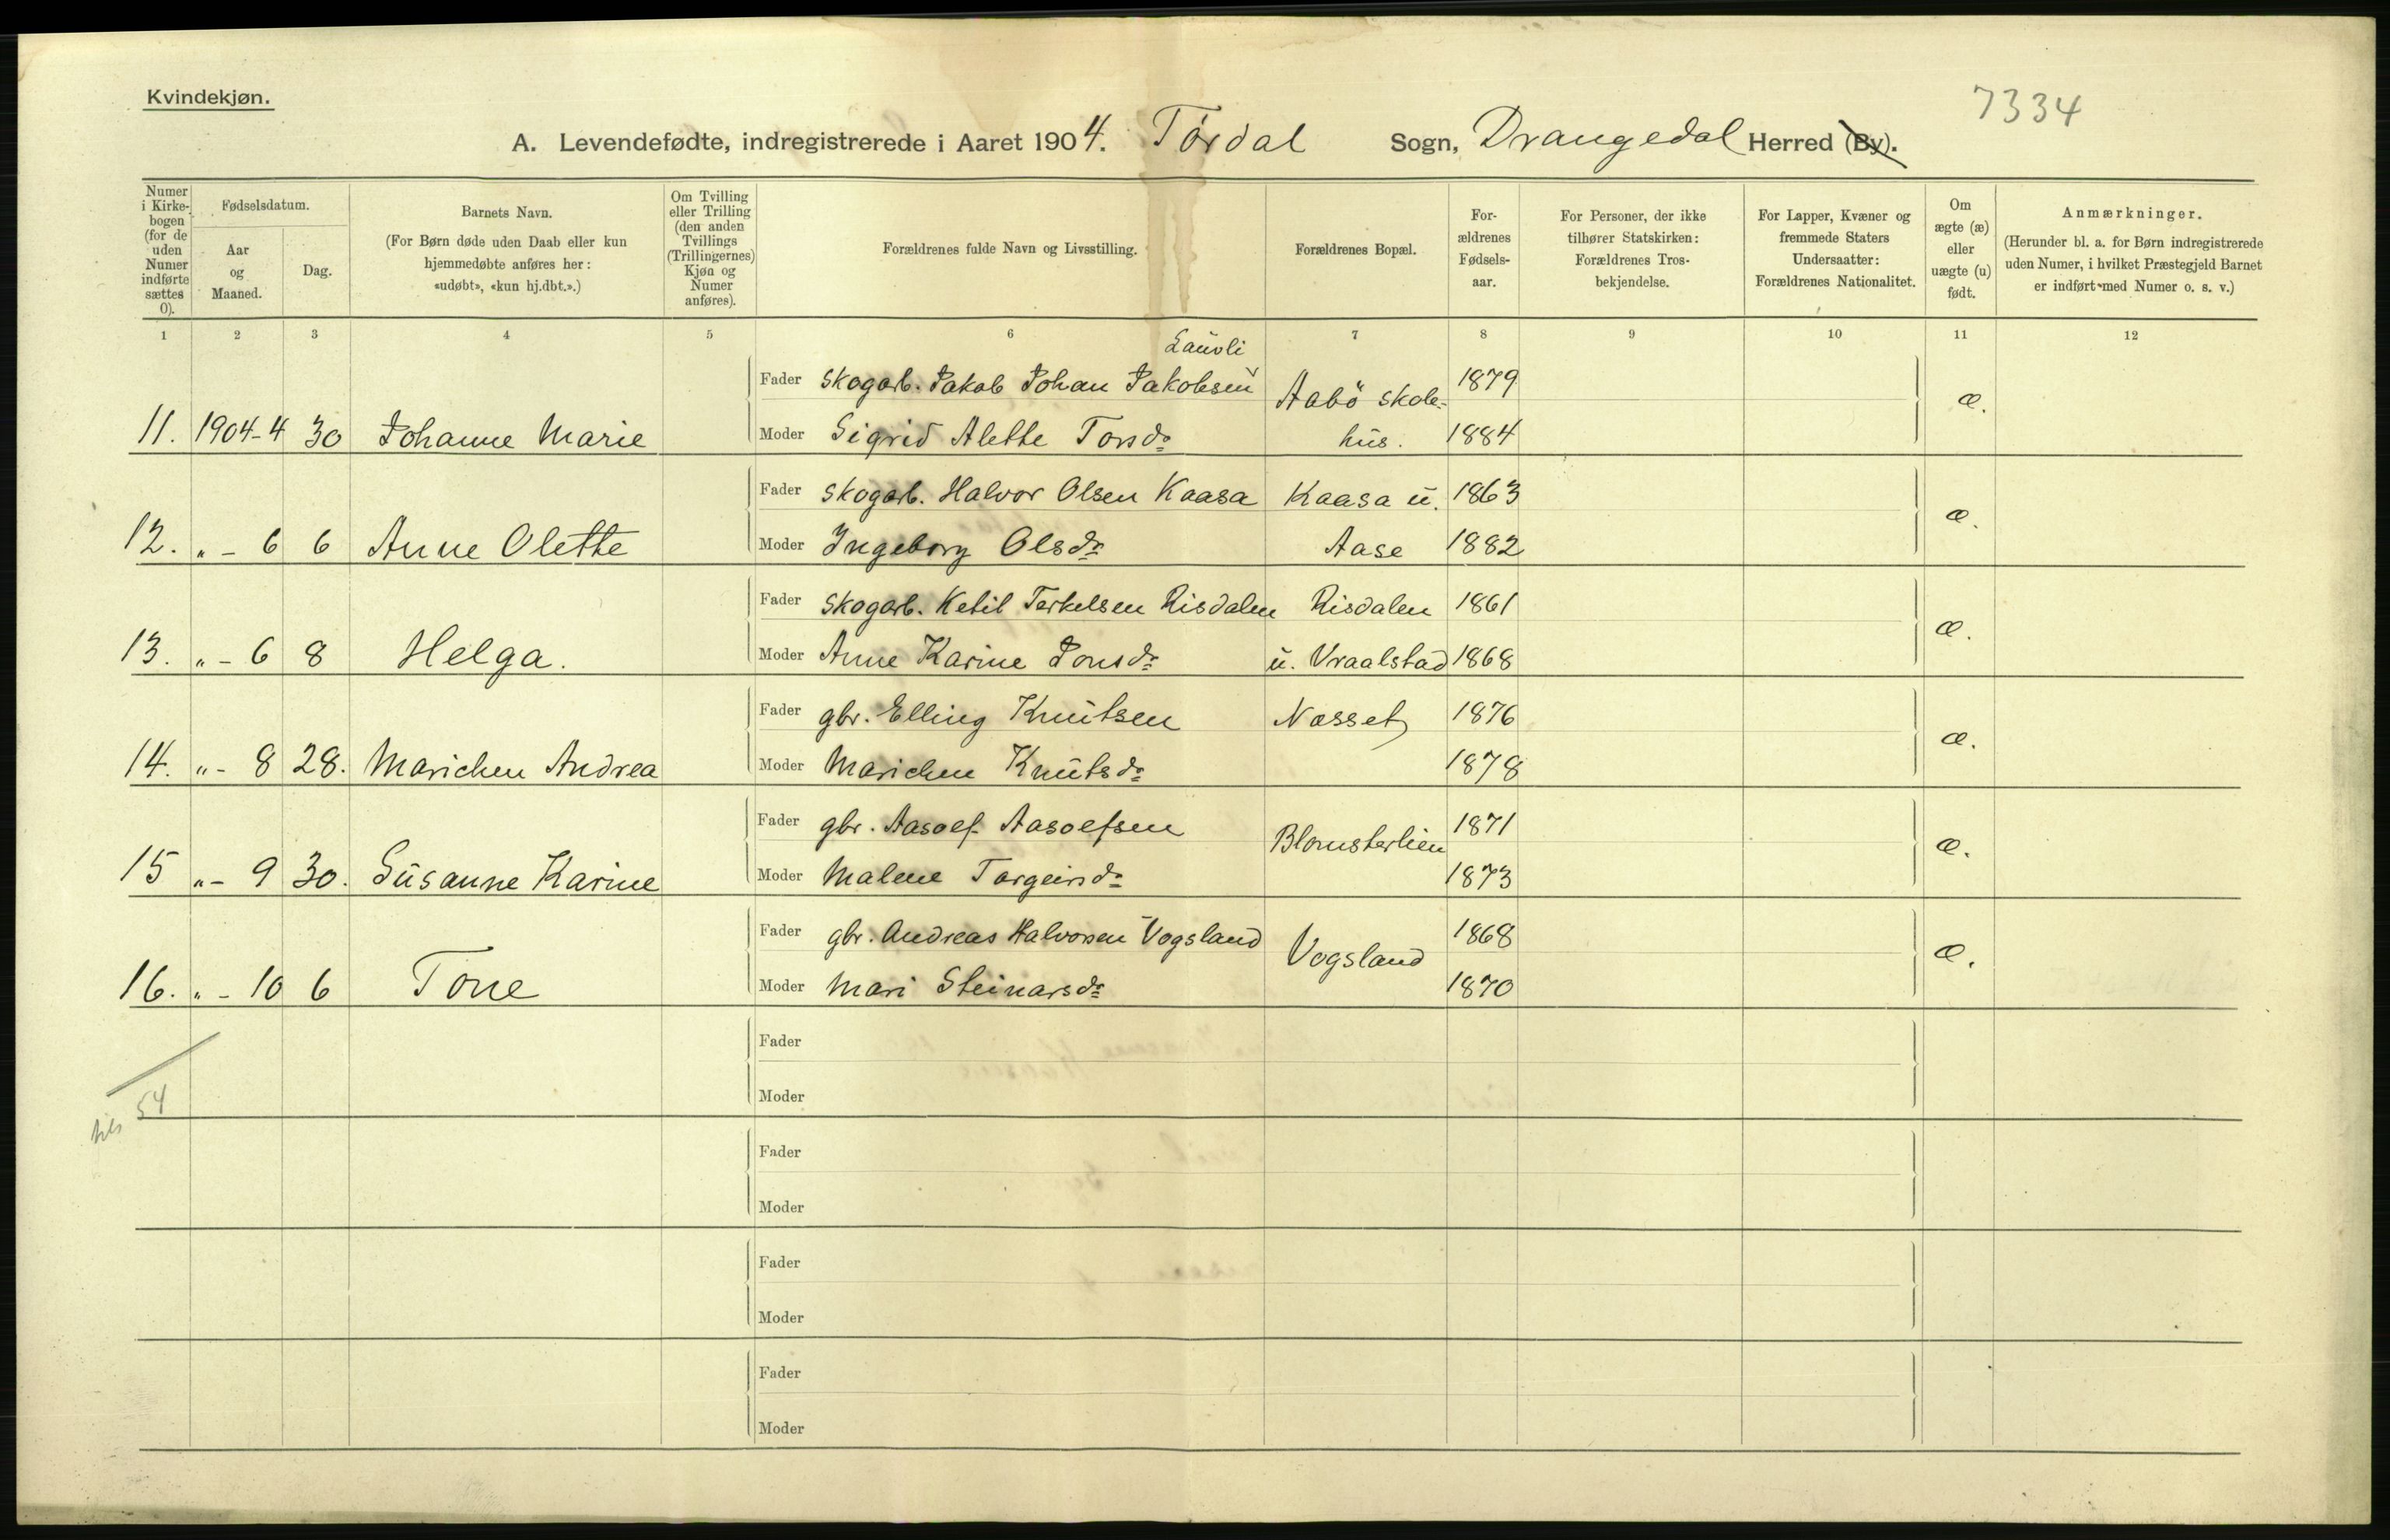 Kvindekjøn.
7334
A. Levendefødte, indregistrerede i Aaret 1904. Tørdal Sogn, Drangedal Herred (By).
Numer i Kirke-bogen (for de uden Numer indførte sættes 0).
Fødselsdatum.
Aar og Maaned.
Dag.
Barnets Navn.
(For Børn døde uden Daab eller kun hjemmedøbte anføres her: «udøbt», «kun hj.dbt.».)
Om Tvilling eller Trilling (den anden Tvillings (Trillingernes) Kjøn og Numer anføres).
Forældrenes fulde Navn og Livsstilling.
Forældrenes Bopæl.
For-ældrenes Fødsels-aar.
For Personer, der ikke tilhører Statskirken: Forældrenes Tros-bekjendelse.
For Lapper, Kvæner og fremmede Staters Undersaatter: Forældrenes Nationalitet.
Om ægte (æ) eller uægte (u) født.
Anmærkninger.
(Herunder bl. a. for Børn indregistrerede uden Numer, i hvilket Præstegjeld Barnet er indført med Numer o. s. v.)
1 2 3 4 5 6 7 8 9 10 11 12
Lauvli
Fader skogarb. Jakob Johan Jakobsen Aabö skole- 1879 æ.
11. 1904-4 30 Johanne Marie Moder Sigrid Alette Torsdr hus. 1884
Fader skogarb. Halvor Olsen Kaasa Kaasa u. 1863 æ.
12. " - 6 6 Anne Olette Moder Ingeborg Olsdr Aase 1882
Fader skogarb. Ketil Terkelsen Risdalen Risdalen 1861 æ.
13. " - 6 8 Helga. Moder Anne Karine Jonsdr u. Vraalstad 1868
Fader gbr. Elling Knutsen Næsset 1876 æ.
14. " - 8 28. Marichen Andrea Moder Marichen Knutsdr 1878
Fader gbr. Aasolf Aasolfsen Blomsterlien 1871 æ.
15 " - 9 30. Susanne Karine Moder Malene Torgeirsdr 1873
Fader gbr. Andreas Halvorsen Vogsland Vogsland 1868 æ.
16. " - 10 6 Tone Moder Mari Steinarsdr 1870
Fader
Moder
54
Fader
Moder
Fader
Moder
Fader
Moder